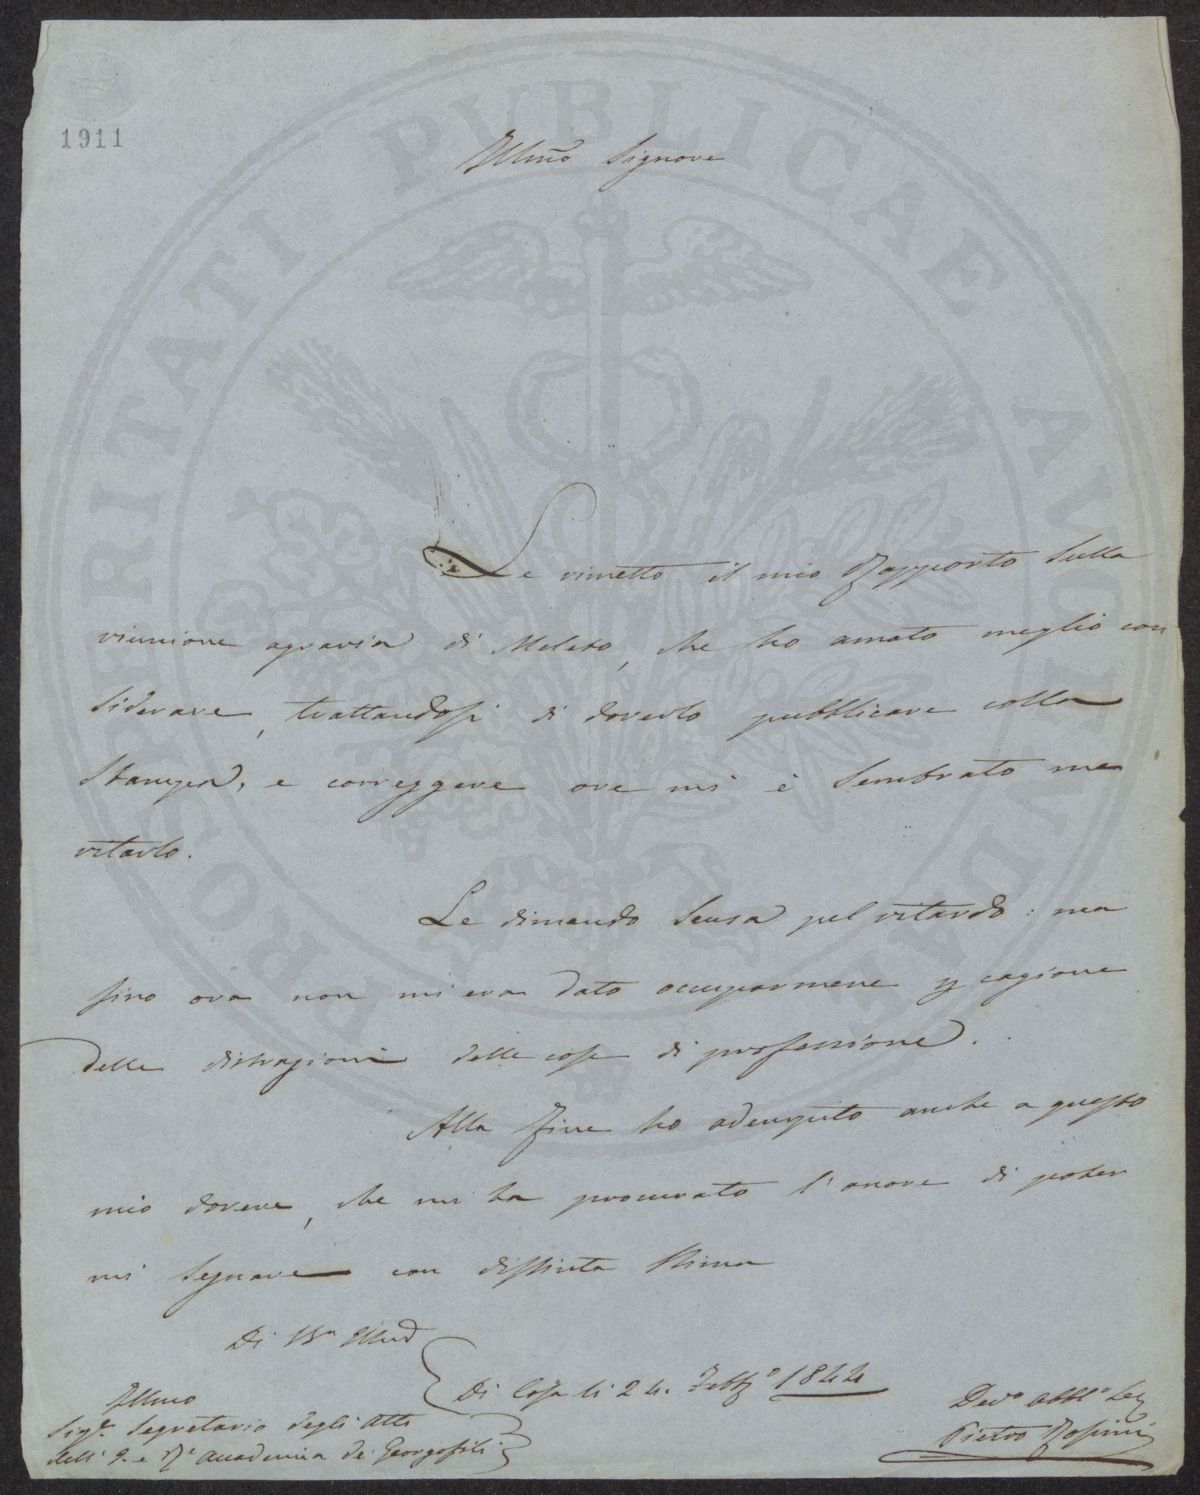 1911
PROSPERITATI PUBLICAE AUGENDAE
Illmo Signore
Le rimetto il mio Rapporto sulla
riunione agraria di Meleto, che ho amato meglio con
siderare, trattandosi di doverlo pubblicare colla
Stampa, e correggere ove mi è sembrato me
ritarlo.
Le dimando scusa pel ritardo: ma
fino ora non mi era dato occuparmene p cagione
delle distrazioni delle cose di professione.
Alla fine ho adempito anche a questo
mio dovere, che mi ha procurato l'onore di poter
mi segnare con distinta stima
Di
Di Casa li 24. Febb° 1844
Illmo
Sigr. Segretario degli Atti
dell' I. e R. Accademia de' Georgofili
Devo Obblo Se
Pietro Rossini